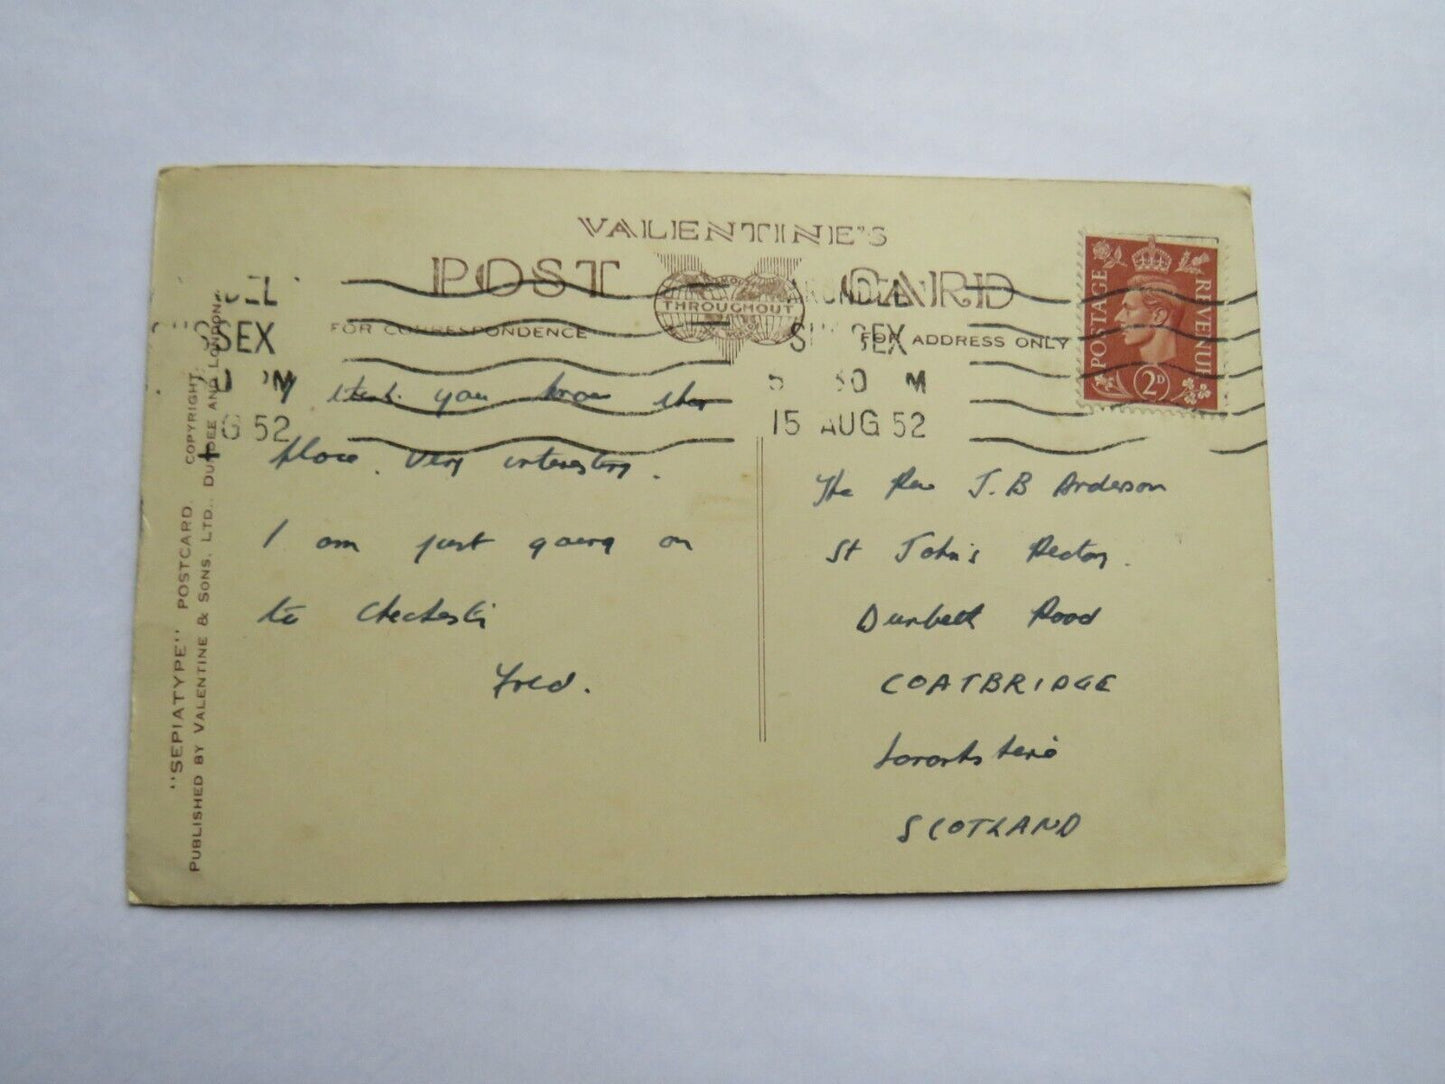 VALENTINE'S
POST CARD
THROUGHOUT
FOR CORRESPONDENCE
FOR ADDRESS ONLY
POSTAGE REVENUE
2D
DEL
SSEX
PM
G 52
ARUNDEL
SUSSEX
5 30 M
15 AUG 52
I think you know this
place. Very interesting.
I am just going on
to
Fred.
The Rev J. B Anderson
St John's Rectory.
Dunbeth Road
COATBRIDGE
SCOTLAND
"SEPIATYPE" POSTCARD. COPYRIGHT.
PUBLISHED BY VALENTINE & SONS, LTD., DUNDEE AND LONDON.